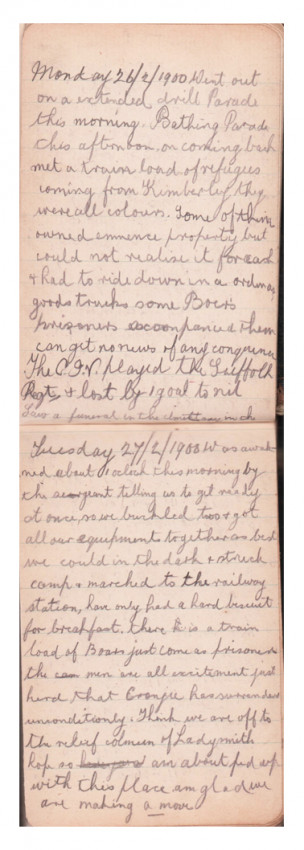 Monday 26/2/1900 Went out
on a extended drill Parade
this morning. Bathing Parade
this afternoon, on coming back
met a train load of refugees
coming from Kimberley they
were all colours. Some of them
owned emmence property but
could not realise it for cash
& had to ride down in a ordinary
goods trucks some Boers
prisoners accompanied them
can get no news of any
The C.I.V. played the Suffolk
Regt & lost by 1 goal to nil
Saw a funeral in the
Tuesday 27/2/1900 Was awak
ned about 1 oclock this morning by
the seargeant telling us to get ready
at once, so we bustled too & got
all our equipment together as best
we could in the dark & struck
camp & marched to the railway
station, have only had a hard biscuit
for breakfast. there is a train
load of Boars just come as prisoners
the men are all excitement just
herd that Cronjie has surrendered
unconditionly. Think we are off to
the relief colmun of Ladysmith
hop so am about fed up
with this place am glad we
are making a move